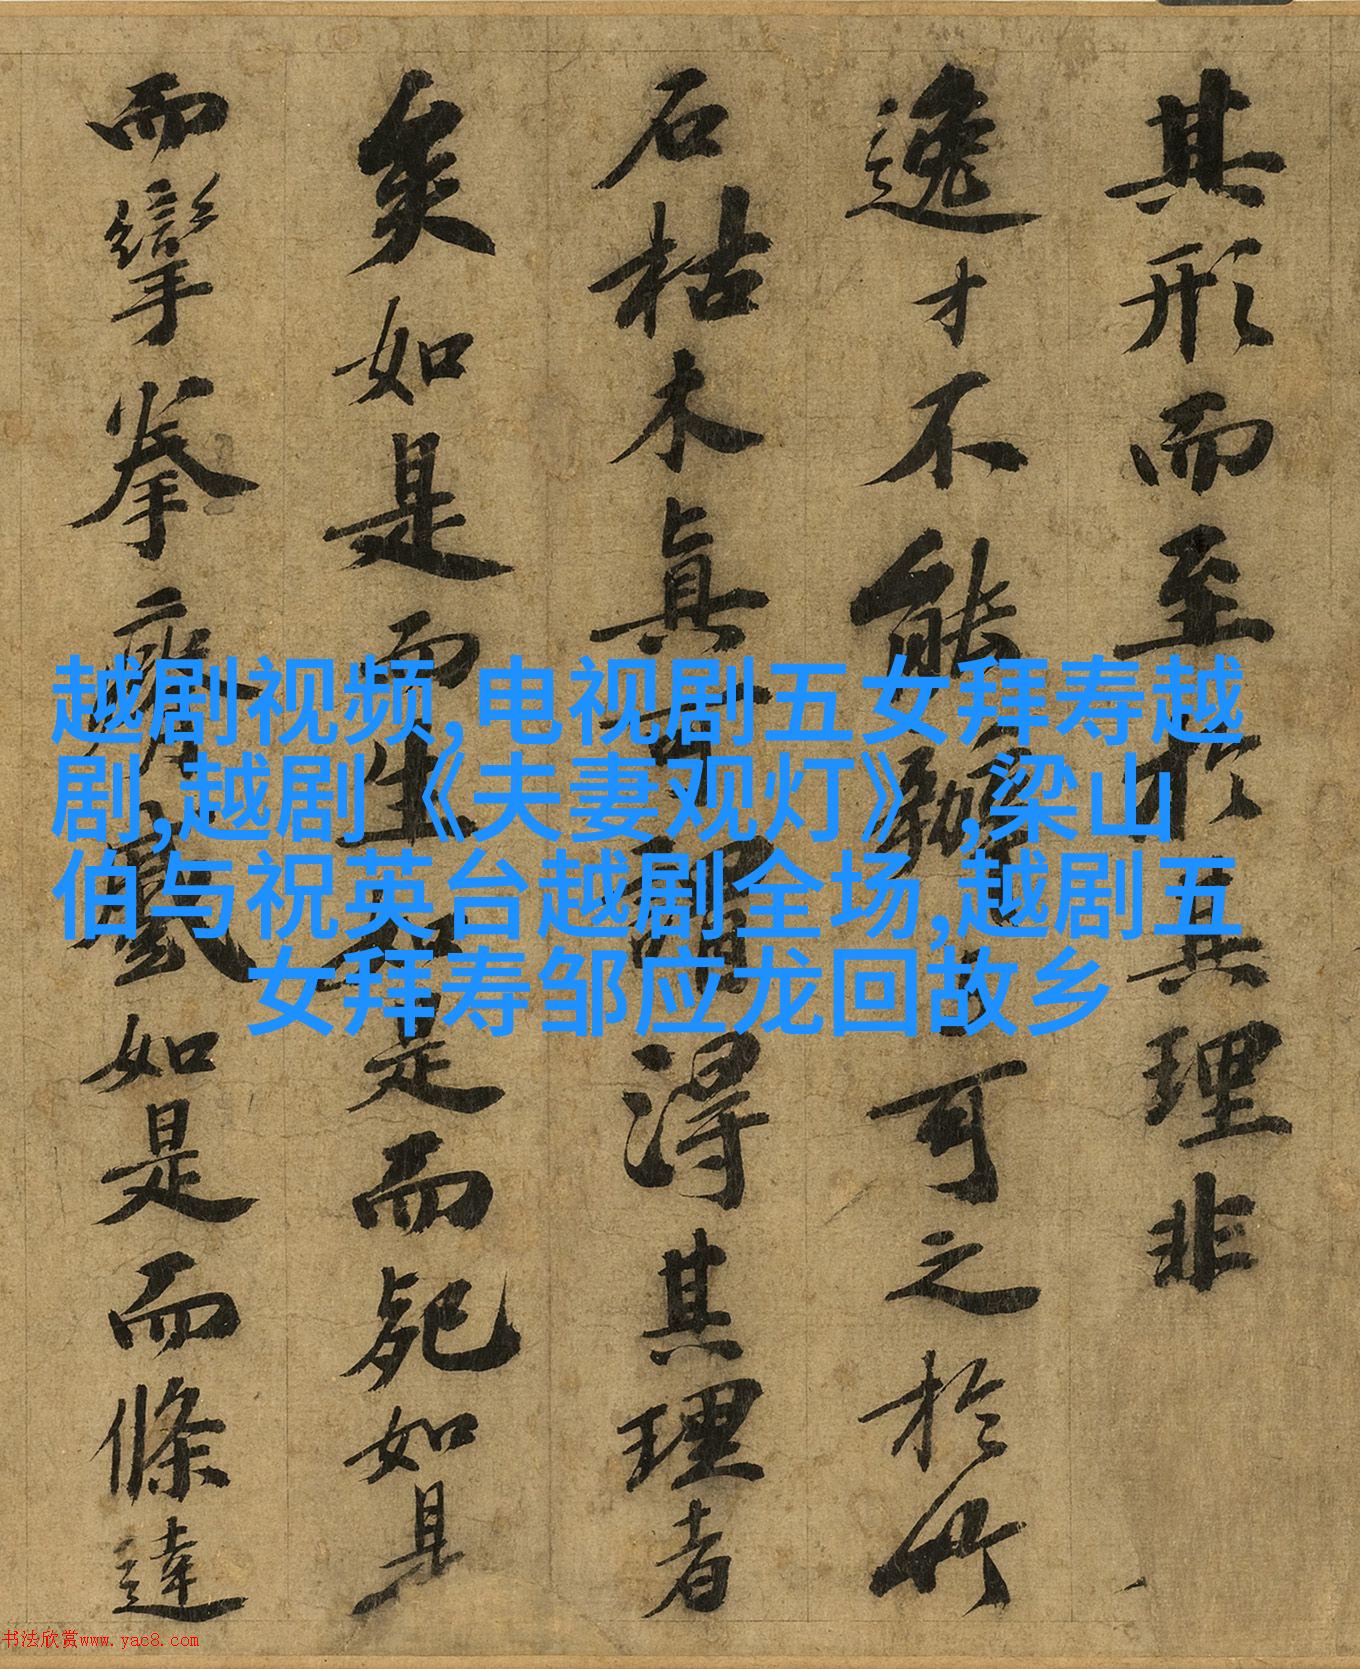 其形而至於其理非
逸才不能辨可之於竹
石枯木真可謂得其理者
矣如是而生如是而死如是
而攣拳瘠蹙如是而條達
越剧视频,电视剧五女拜寿越
剧,越剧《夫妻观灯》,梁山
伯与祝英台越剧全场,越剧五
女拜寿邹应龙回故乡
书法欣赏www.yac8.com